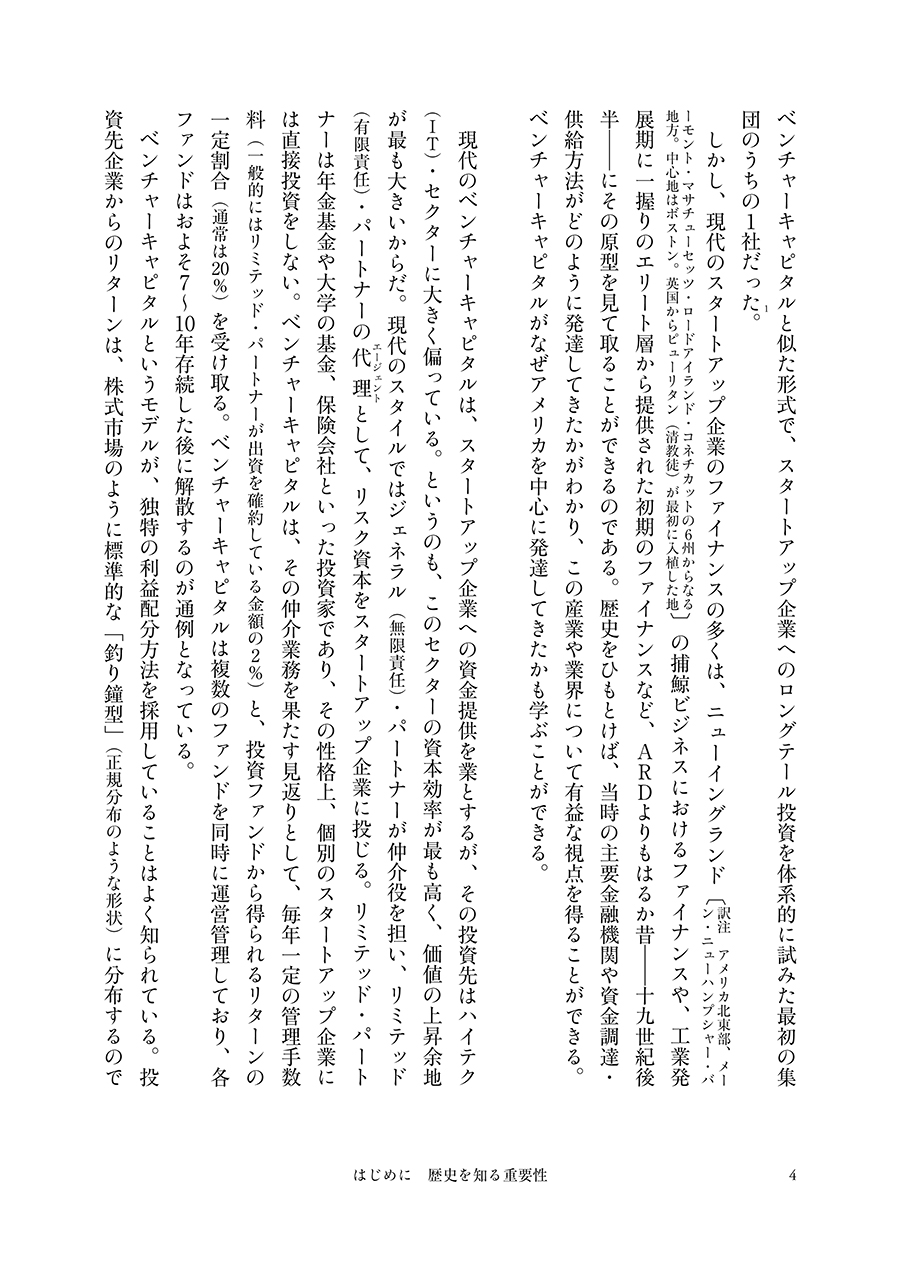 ベンチャーキャピタルと似た形式で、スタートアップ企業へのロングテール投資を体系的に試みた最初の集
団のうちの1社だった。1
しかし、現代のスタートアップ企業のファイナンスの多くは、ニューイングランド〔訳注 アメリカ北東部、メーン・ニューハンプシャー・バ
ーモント・マサチューセッツ・ロードアイランド・コネチカットの6州からなる地方。中心地はボストン。英国からピューリタン（清教徒）が最初に入植した地〕の捕鯨ビジネスにおけるファイナンスや、工業発
展期に一握りのエリート層から提供された初期のファイナンスなど、ARDよりもはるか昔――十九世紀後
半――にその原型を見て取ることができるのである。歴史をひもとけば、当時の主要金融機関や資金調達・
供給方法がどのように発達してきたかがわかり、この産業や業界について有益な視点を得ることができる。
ベンチャーキャピタルがなぜアメリカを中心に発達してきたかも学ぶことができる。
現代のベンチャーキャピタルは、スタートアップ企業への資金提供を業とするが、その投資先はハイテク
（IT）・セクターに大きく偏っている。というのも、このセクターの資本効率が最も高く、価値の上昇余地
が最も大きいからだ。現代のスタイルではジェネラル（無限責任）・パートナーが仲介役を担い、リミテッド
（有限責任）・パートナーの代理エージェントとして、リスク資本をスタートアップ企業に投じる。リミテッド・パート
ナーは年金基金や大学の基金、保険会社といった投資家であり、その性格上、個別のスタートアップ企業に
は直接投資をしない。ベンチャーキャピタルは、その仲介業務を果たす見返りとして、毎年一定の管理手数
料（一般的にはリミテッド・パートナーが出資を確約している金額の2%）と、投資ファンドから得られるリターンの
一定割合（通常は20%）を受け取る。ベンチャーキャピタルは複数のファンドを同時に運営管理しており、各
ファンドはおよそ7～10年存続した後に解散するのが通例となっている。
ベンチャーキャピタルというモデルが、独特の利益配分方法を採用していることはよく知られている。投
資先企業からのリターンは、株式市場のように標準的な「釣り鐘型」（正規分布のような形状）に分布するので
はじめに 歴史を知る重要性
4